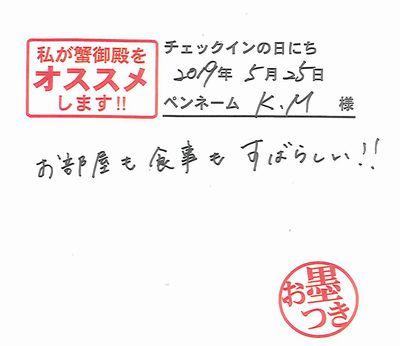 私が蟹御殿を
オススメ
します!!
チェックインの日にち
2019年 5月 25日
ペンネーム K.M 様
お部屋も食事もすばらしい!!
お墨つき